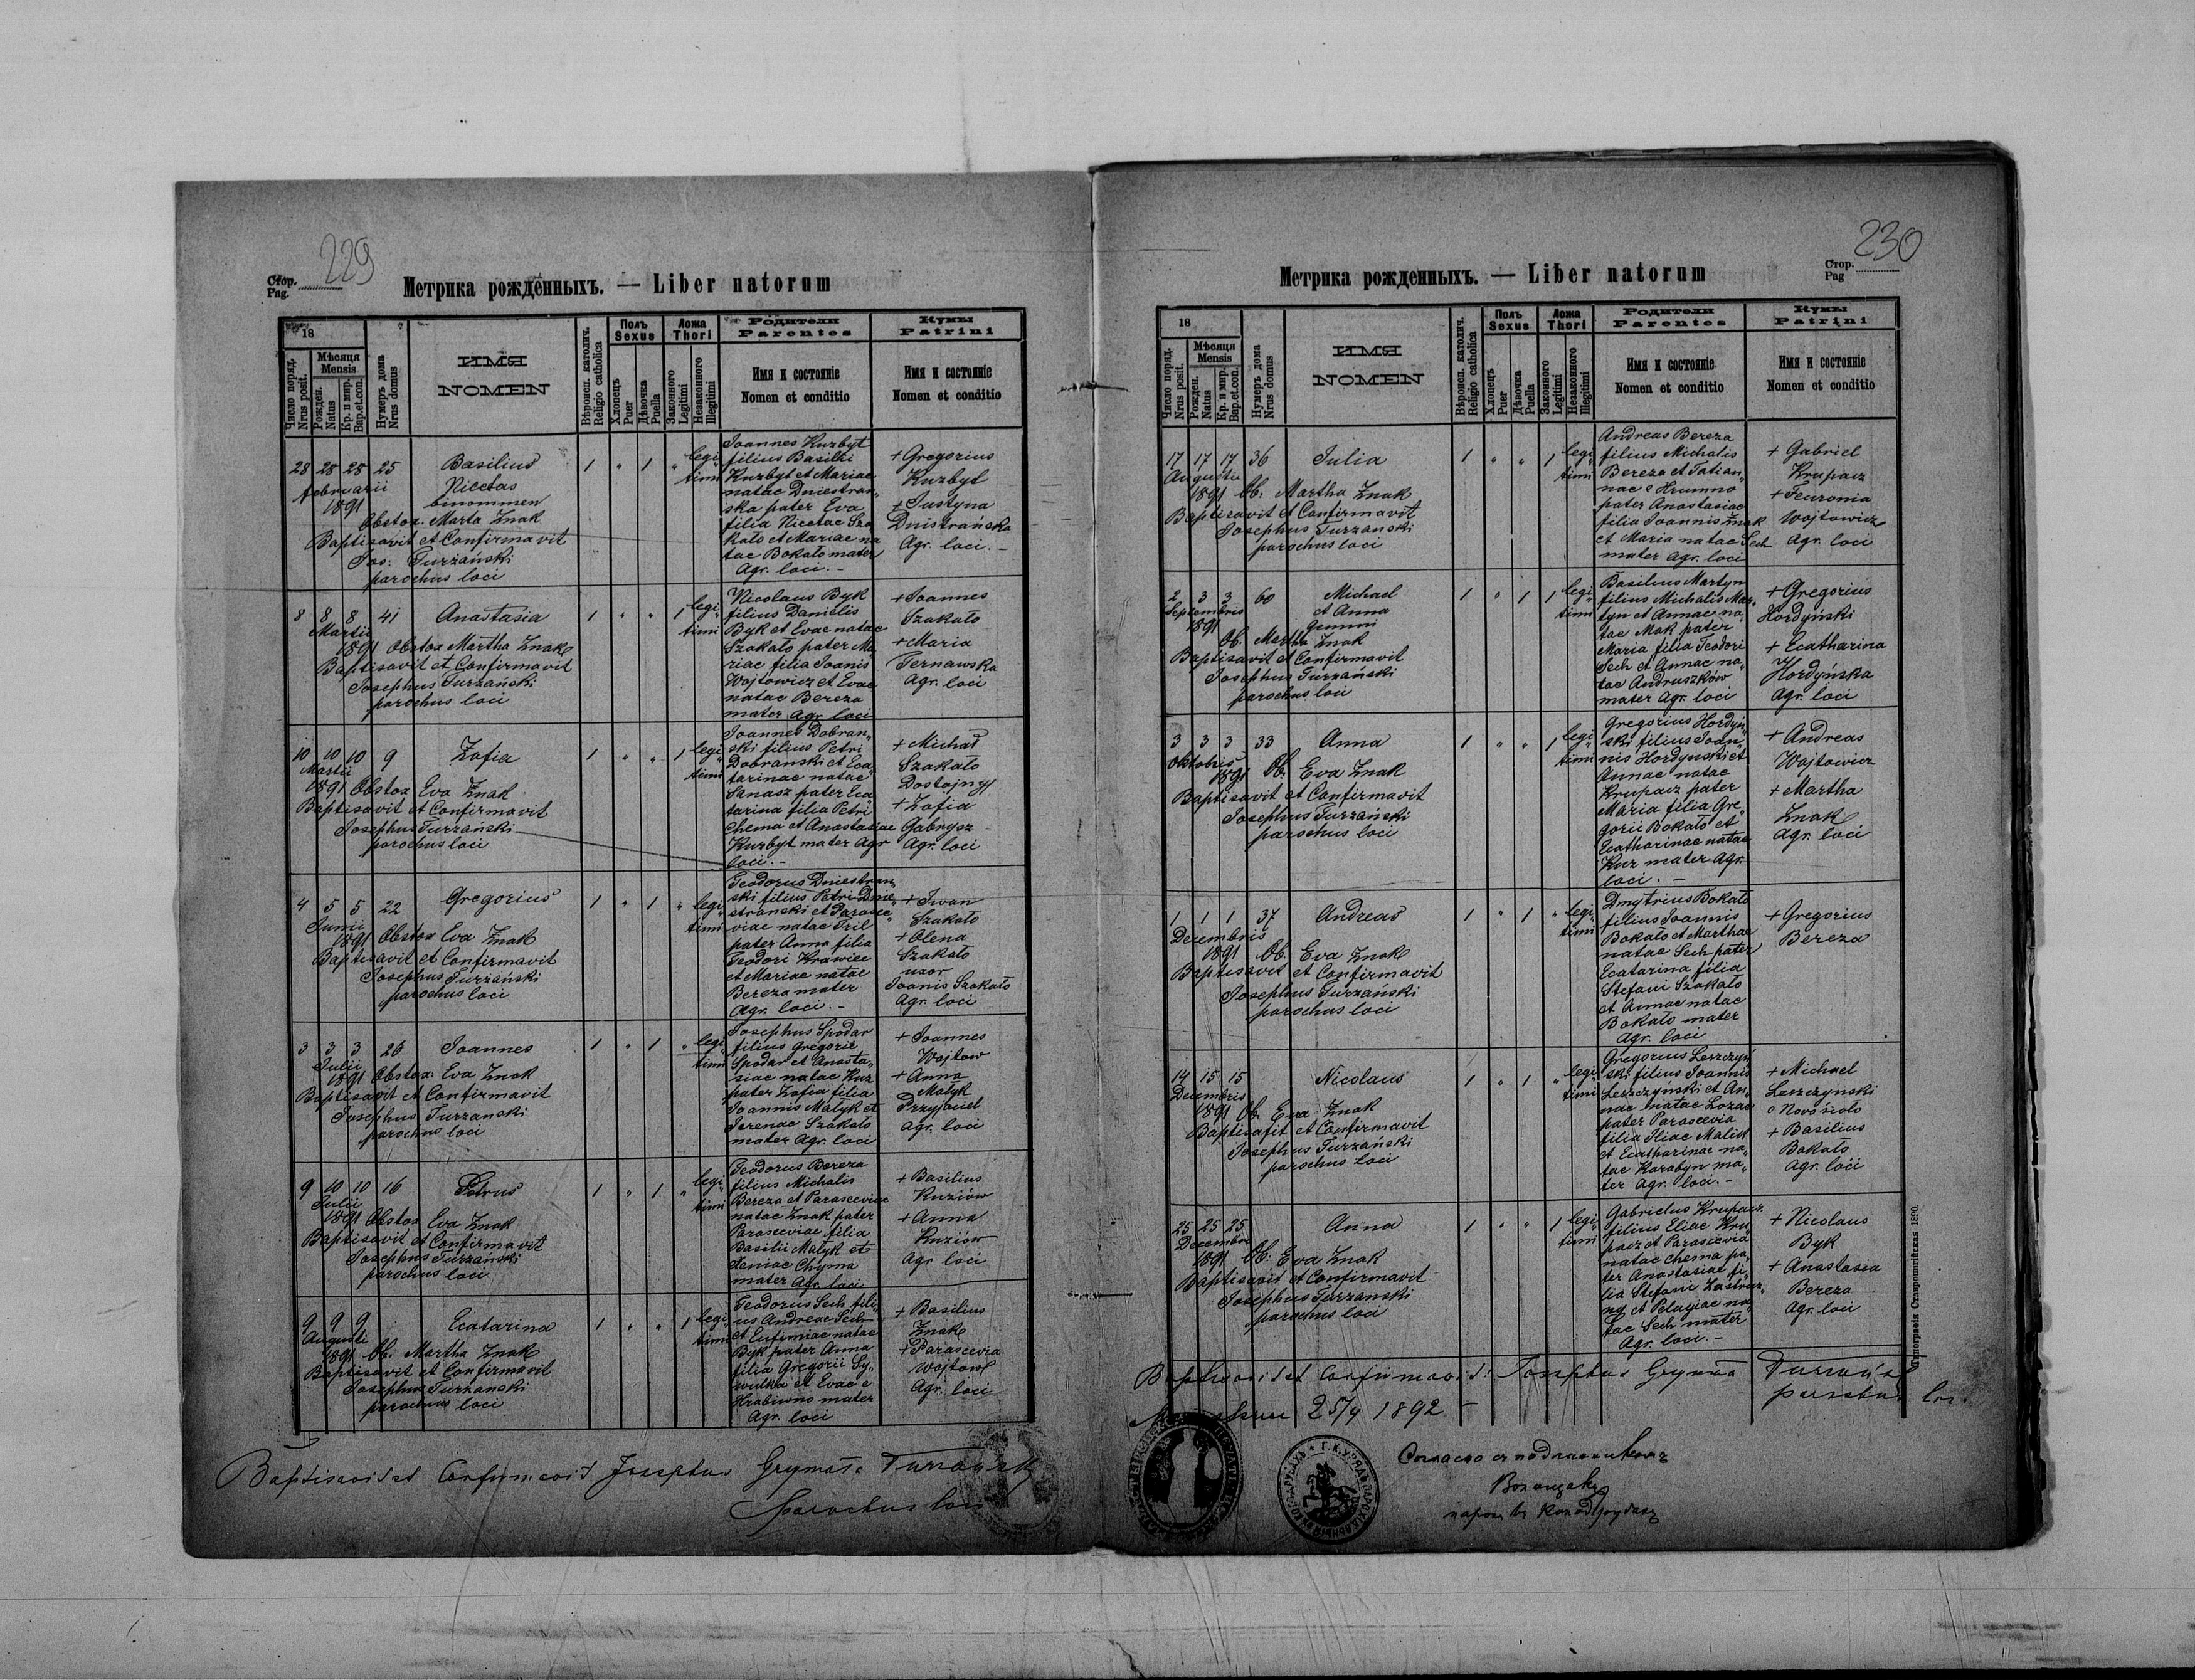 229
Стор.
Pag.
Метрика рожденныхъ. — Liber natorum
18
Число поряд.
Nrus posit.
Мѣсяця
Mensis
Рожден.
Natus
Кр. и мир.
Bap.et.con.
Нумеръ дома
Nrus domus
ИМЯ
NOMEN
Вѣроисп. католич.
Religio catholica
Полъ
Sexus
Хлопецъ
Puer
Дѣвочка
Puella
Ложа
Thori
Законного
Legitimi
Незаконного
Illegitimi
Родители
Parentes
Имя и состояніе
Nomen et conditio
Кумы
Patrini
Имя и состояніе
Nomen et conditio
28 28 28 25 Basilius 1 " 1 " legi
februarii Nicetas timi
1891 binommen
Obstox. Marta Znak
Baptisavit et Confirmavit
Jos: Turzański
parochus loci
Joannes Kuzbyt
filius Basilii
Kuzbyt et Mariae
natae Dniestran„
ska pater Eva
filia Nicetae Sza
kało et Mariae na
tae Bokało mater
Agr. loci. -
+ Gregorius
Kuzbyt
+ Justyna
Dnistrańska
Agr. loci. -
8 8 8 41 Anastasia 1 " " 1 legi
Martii timi
1891 Obstox Martha Znak
Baptisavit et Confirmavit
Josephus Turzański
parochus loci
Nicolaus Byk
filius Danielis
Byk et Evae natae
Szakało pater Ma
riae filia Joanis
Wojtowicz et Evae
natae Bereza
mater Agr. loci
+ Joannes
Szakało
+ Maria
Ternawska
Agr. loci
10 10 10 9 Zofia 1 " " 1 legi
Martii timi
1891 Obstox Eva Znak
Baptisavit et Confirmavit
Josephus Turzański
parochus loci
Joannes Dobran„
ski filius Petri
Dobranski et Eca
tarinae natae
Sanasz pater Eca
tarina filia Petri
Chema et Anastasiae
Kuzbyt mater Agr
loci. -
+ Michał
Szakało
Dostojny
+ Zofia
Gabrysz
Agr. loci
4 5 5 22 Gregorius 1 " 1 " legi
Junii timi
1891 Obstox Eva Znak
Baptisavit et Confirmavit
Josephus Turzański
parochus loci
Teodorus Dniestran„
ski filius Petri Dnie„
stranski et Parasce„
viae natae Tril
pater Anna filia
Teodori Krawiec
et Mariae natae
Bereza mater
Agr. loci. -
+ Iwan
Szakało
+ Olena
Szakało
uxor
Joanis Szakało
Agr. loci
3 3 3 26 Joannes 1 " 1 " legi
Julii timi
1891 Obstox: Eva Znak
Baptisavit et Confirmavit
Josephus Turzanski
parochus loci
Josephus Spodar
filius Gregorii
Spodar et Anasta„
siae natae Kuz
pater Zofia filia
Joannis Małyk et
Irenae Szakało
mater Agr. loci
+ Joannes
Wojtow
+ Anna
Małyk
Przyjaciel
agr. loci
9 10 10 16 Petrus 1 " 1 " legi
Julii timi
1891 Obstox Eva Znak
Baptisavit et Confirmavit
Josephus Turzański
parochus loci
Teodorus Bereza
filius Michalis
Bereza et Parasceviae
natae Znak pater
Parasceviae filia
Basilii Małyk et
Xeniae Chyma
mater Agr. loci
+ Basilius
Kuziów
+ Anna
Kuziów
Agr. loci
9 9 9 Ecatarina 1 " " 1 legi
Augusti timi
1891 Ob. Martha Znak
Baptisavit et Confirmavit
Josephus Turzanski
parochus loci
Teodorus Sech fili„
us Andreae Sech
et Eufimiae natae
Byk pater Anna
filia Gregorii Sy„
wulka et Evae e
Hrabiwno mater
Agr. loci
+ Basilius
Znak
+ Parascevia
Wojtow
Agr. loci
Baptisavit et Confirmavit Josephus Grymała Turzański
parochus loci
230
Стор.
Pag
Метрика рожденныхъ. — Liber natorum
18
Число поряд.
Nrus posit.
Мѣсяця
Mensis
Рожден.
Natus
Кр. и мир.
Bap.et.con.
Нумеръ дома
Nrus domus
ИМЯ
NOMEN
Вѣроисп. католич.
Religio catholica
Полъ
Sexus
Хлопецъ
Puer
Дѣвочка
Puella
Ложа
Thori
Законного
Legitimi
Незаконного
Illegitimi
Родители
Parentes
Имя и состояніе
Nomen et conditio
Кумы
Patrini
Имя и состояніе
Nomen et conditio
17 17 17 36 Julia 1 " " 1 legi
Augusti timi
1891 Ob: Martha Znak
Baptisavit et Confirmavit
Josephus Turzanski
parochus loci
Andreas Bereza
filius Michalis
Bereza et Tatian„
nae e Hrumno
pater Anastasiae
filia Joannis Znak
et Maria natae Sech
mater Agr. loci
+ Gabriel
Krupacz
+ Feuronia
Wojtowicz
Agr. loci
2 3 3 60 Michael 1 " 1 1 legi
Septembris et Anna timi
1891 gemini
Ob. Martha Znak
Baptisavit et Confirmavit
Josephus Turzański
parochus loci
Basilius Martyn
filius Michalis Mar„
tyn et Annae na„
tae Mak pater
Maria filia Teodori
Sech et Annae na„
tae Andruszków
mater Agr. loci
+ Gregorius
Hordyński
+ Ecatharina
Hordyńska
Agr. loci
3 3 3 33 Anna 1 " " 1 legi
Oktobris timi
1891 Ob. Eva Znak
Baptisavit et Confirmavit
Josephus Turzański
parochus loci
Gregorius Hordyń„
ski filius Joan„
nis Hordynski et
Annae natae
Krupacz pater
Maria filia Gre„
gorii Bokało et
Ecatharinae natae
Kuz mater Agr.
loci. -
+ Andreas
Wojtowicz
+ Martha
Znak
Agr. loci
1 1 1 37 Andreas 1 " 1 " legi
Decembris timi
1891 Ob. Eva Znak
Baptisavit et Confirmavit
Josephus Turzański
parochus loci
Dmytrius Bokało
filius Joannis
Bokało et Marthae
natae Sech pater
Ecatarina filia
Stefani Szakało
et Annae natae
Bokało mater
Agr. loci
+ Gregorius
Bereza
14 15 15 Nicolaus 1 " 1 " legi
Decembris timi
1891 Ob. Eva Znak
Baptisafit et Confirmavit
Josephus Turzański
parochus Loci
Gregorius Leszczyń
ski filius Joannis
Leszczyński et An„
nae natae Lozae
pater Parascevia
filia Iliae Malik
et Ecatharinae na„
tae Karabyn ma„
ter Agr. loci. -
+ Michael
Leszczynski
e Nowosioło
+ Basilius
Bokało
Agr. loci
25 25 25 Anna 1 " " 1 legi
Decembris timi
1891 Ob: Eva Znak
Baptisavit et Confirmavit
Josephus Turzanski
parochus loci
Gabrielus Krupacz
filius Eliae Kru„
pacz et Parascevia
natae Chema pa„
ter Anastasiae fi„
lia Stefani
et Pelagiae na„
tae Sech mater
Agr. loci. -
+ Nicolaus
Byk
+ Anastasia
Bereza
Agr. loci
Baptisavit et Confirmavit: Josephus Grymała Turzański
parochus loci
25/4 1892 -
Согласно съ подлинникомъ
Типографія Ставропигійская 1890.